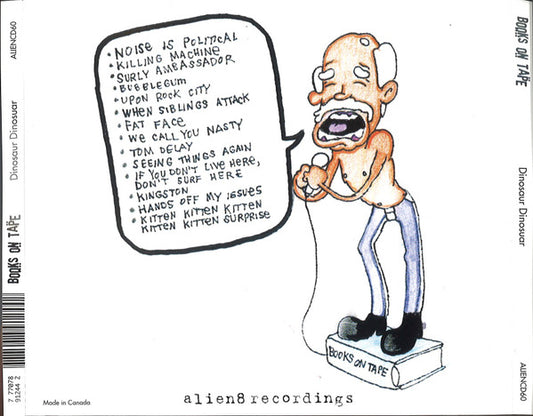 ALIENCD60
Dinosaur Dinosuar
BOOKS ON TAPE
7 77078
91244 2
• NOISE IS POLITICAL
• KILLING MACHINE
• SURLY AMBASSADOR
• BUBBLEGUM
• UPON ROCK CITY
• WHEN SIBLINGS ATTACK
• FAT FACE
• WE CALL YOU NASTY
• TOM DELAY
• SEEING THINGS AGAIN
• IF YOU DON'T LIVE HERE,
DON'T SURF HERE
• KINGSTON
• HANDS OFF MY ISSUES
• KITTEN KITTEN KITTEN
KITTEN KITTEN SURPRISE
BOOKS ON TAPE
Made in Canada
alien8 recordings
BOOKS ON TAPE
Dinosaur Dinosuar
ALIENCD60